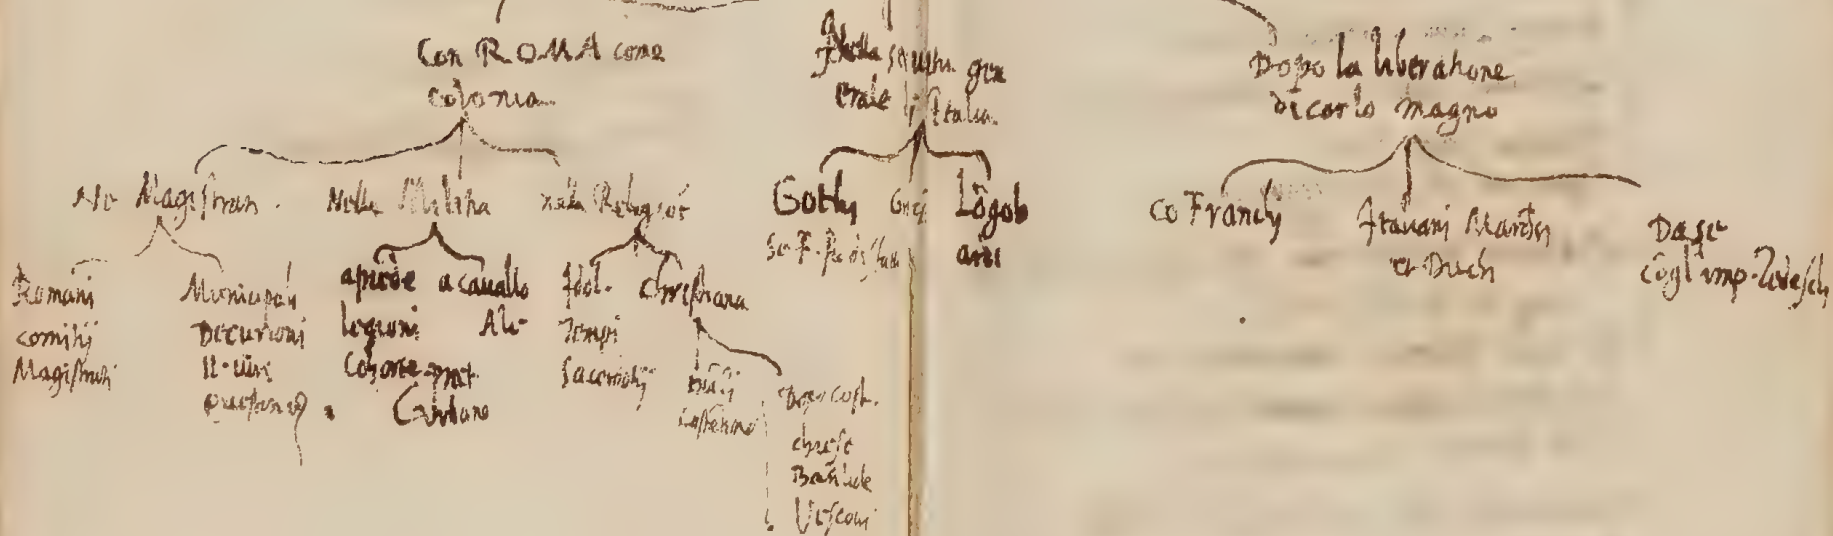 Con ROMA come
colonia
Nella seruitu gen
erale d'Italia.
Dopo la liberatione
di carlo magno
Ne Magistrati.
Nella Militia
nella Religiõe
Gothi
Greci
Lõgob
ardi
co Franchj
Italiani Marchesi
et Duchi
Da se
cõgl'imp. Tedeschj
Romani
comitij
Magistrati
Municipali
Decurioni
II-uiri
a piede
legioni
Cohorte
a cauallo
Ale
Idol.
Tempi
Sacerdotij
christiana
Dopo Cost.
chiese
Basiliche
Vescoui